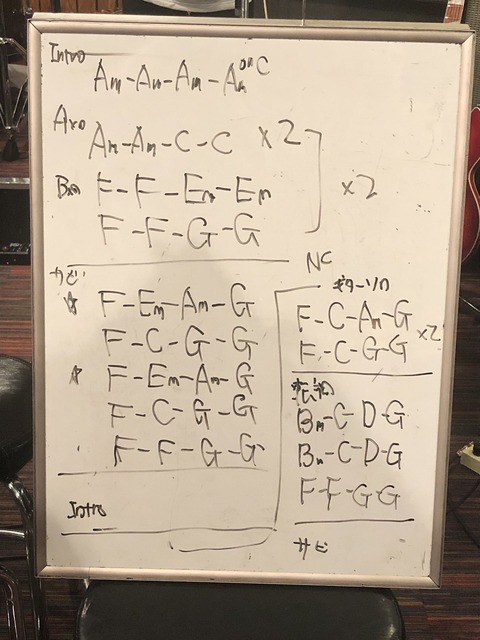 Intro
Am-Am-Am-Am onC
Aメロ
Am-Am-C-C ×2
Bメロ
F-F-Em-Em ×2
F-F-G-G
サビ
☆ F-Em-Am-G
F-C-G-G
☆ F-Em-Am-G
F-C-G-G
F-F-G-G
Intro
NC
ギターソロ
F-C-Am-G ×2
F-C-G G
Bm-C-D-G
Bm-C-D-G
F-F-G G
サビ